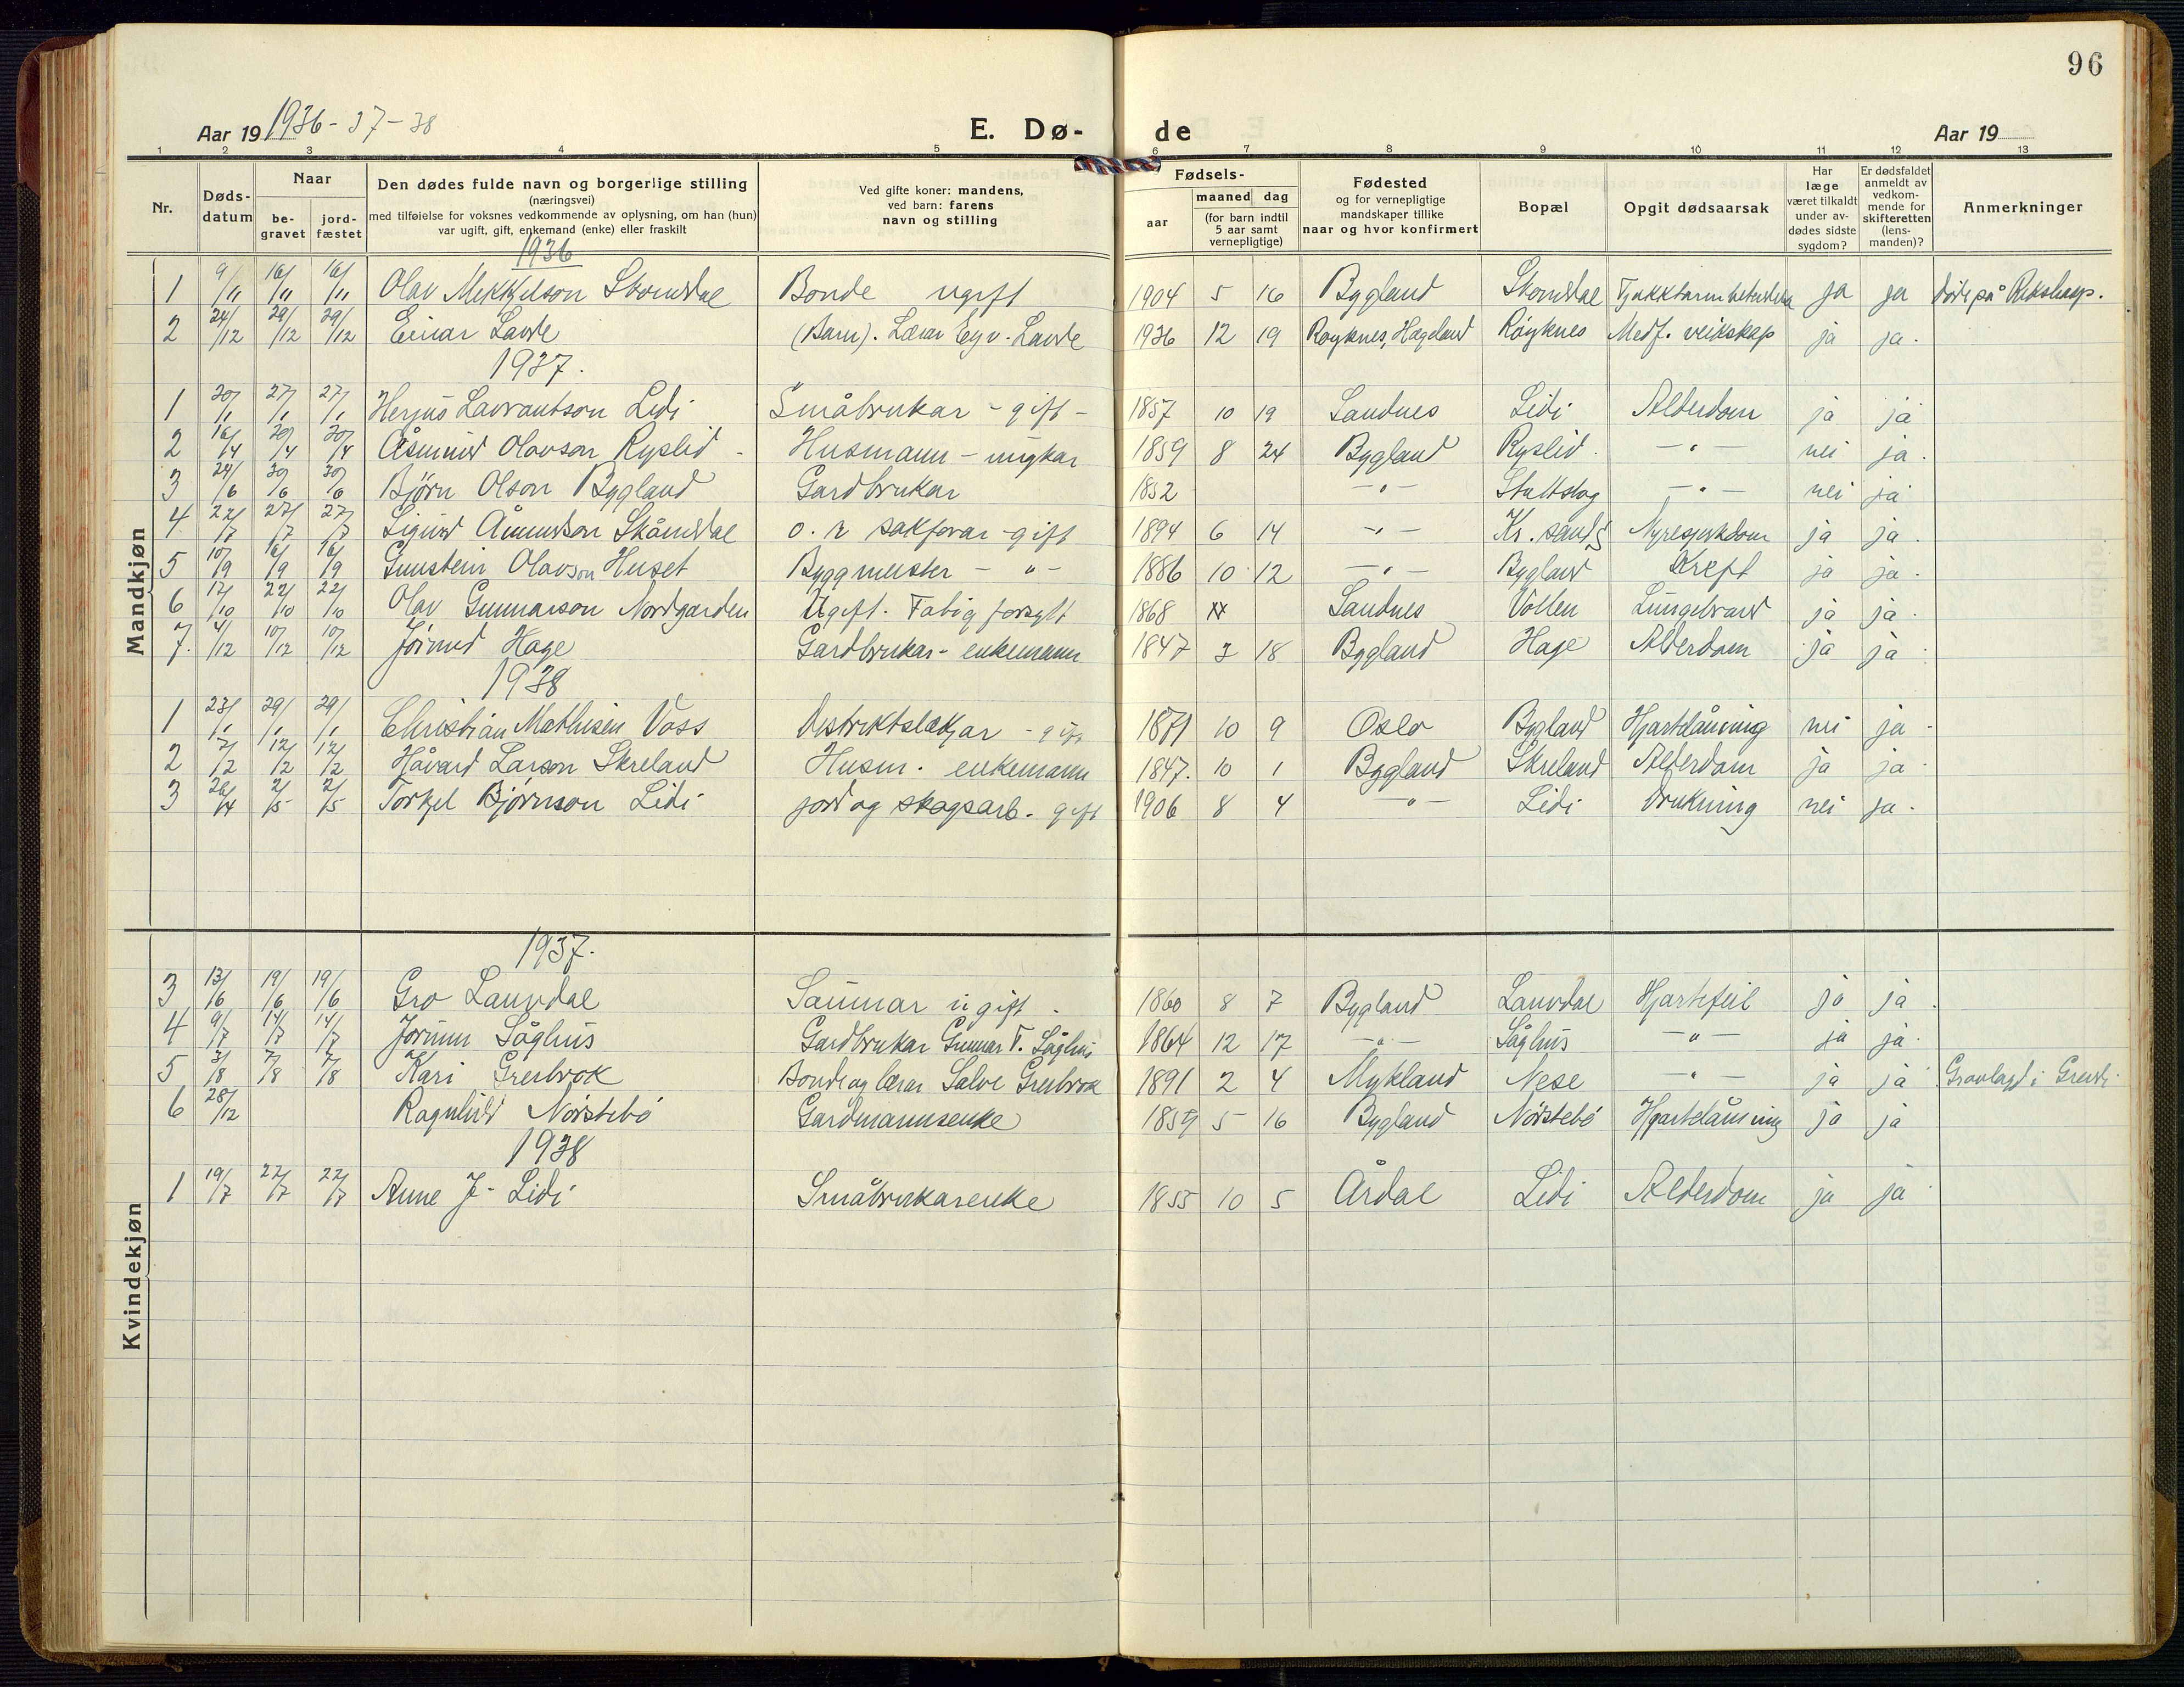 96
Aar 19 1936 - 37 - 38
E. Dø-
de
Aar 19
1 2 3 4 5 6 7 8 9 10 11 12 13
Nr.
Døds-datum
Naar
be-gravet
jord-fæstet
Den dødes fulde navn og borgerlige stilling
(næringsvei)
med tilføielse for voksnes vedkommende av oplysning, om han (hun)
var ugift, gift, enkemand (enke) eller fraskilt
Ved gifte koner: mandens,
ved barn: farens
navn og stilling
Fødsels-
aar
maaned dag
(for barn indtil 5 aar samt vernepligtige)
Fødested
og for vernepligtige
mandskaper tillike
naar og hvor konfirmert
Bopæl
Opgit dødsaarsak
Har læge været tilkaldt under av-dødes sidste sygdom?
Er dødsfaldet anmeldt av vedkom-mende for skifteretten (lens-manden)?
Anmerkninger
Mandkjøn
1936
1 9/11 16/11 16/11 Olav Mekkjelson Skomedal Bonde ugift 1904 5 16 Bygland Skomedal ja ja døde på Rikshosp.
2 24/12 29/12 29/12 Einar Lavde (Barn). Lærar Eyv. Lavde 1936 12 19 Røyknes, Hægeland Røyknes Medf. veikskap ja ja.
1937.
1 20/1 27/1 27/1 Herjus Lavrantson Lidi Småbrukar - gift - 1857 10 19 Sandnes Lidi Alderdom ja ja
2 16/4 20/4 20/4 Åsmund Olavson Ryslid - Husmann - ungkar 1859 8 24 Bygland Ryslid. — " — nei ja.
3 24/6 30/6 30/6 Bjørn Olson Bygland Gardbrukar 1852 — " — Stuttstog — " — nei ja
4 22/7 27/7 27/7 Sigurd Åmundson Skåmedal o. r sakførar - gift 1894 6 14 — " — Kr. sand S Nyresjukdom ja ja.
5 10/9 16/9 16/9 Gunstein Olavson Huset Byggmeister — " — 1886 10 12 — " — Bygland Kreft ja ja.
6 17/10 22/10 22/10 Olav Gunnarson Nordgarden Ugift. Fatigforsytt 1868 Sandnes Vollen Lungebrand ja ja.
7. 4/12 10/12 10/12 Jørund Hage Gardbrukar - enkemann 1847 3 18 Bygland Hage Alderdom ja ja
1938
1 23/1 29/1 29/1 Christian Mathisen Voss Distriktslækjar - gift 1871 10 9 Oslo Bygland Hjartelåming nei ja -
2 7/2 12/2 12/2 Håvard Larson Skreland Husm. enkemann 1847. 10 1 Bygland Skreland Alderdom ja ja
3 26/4 2/5 2/5 Torkjel Bjørnson Lidi jord og skogsarb. gift 1906 8 4 — " — Lidi Drukning nei ja.
Kvindekjøn
1937.
3 13/6 19/6 19/6 Gro Lauvdal Saumar ugift. 1860 8 7 Bygland Lauvdal Hjartefeil ja ja.
4 9/7 14/7 14/7 Jorunn Såghus Gardbrukar Gunnar T. Såghus 1864 12 17 — " — Såghus — " — ja ja.
5 3/8 7/8 7/8 Kari Gresbrok Bonde og lærar Salve Gresbrok 1891 2 4 Mykland Nese — " — ja ja Gravlagd i
6 28/12 Ragnhild Nørstebø Gardmannsenke 1859 5 16 Bygland Nørstebø Hjartelåming ja ja
1938
1 19/7 22/7 22/7 Anne J. Lidi Småbrukarenke 1855 10 5 Årdal Lidi Alderdom ja ja